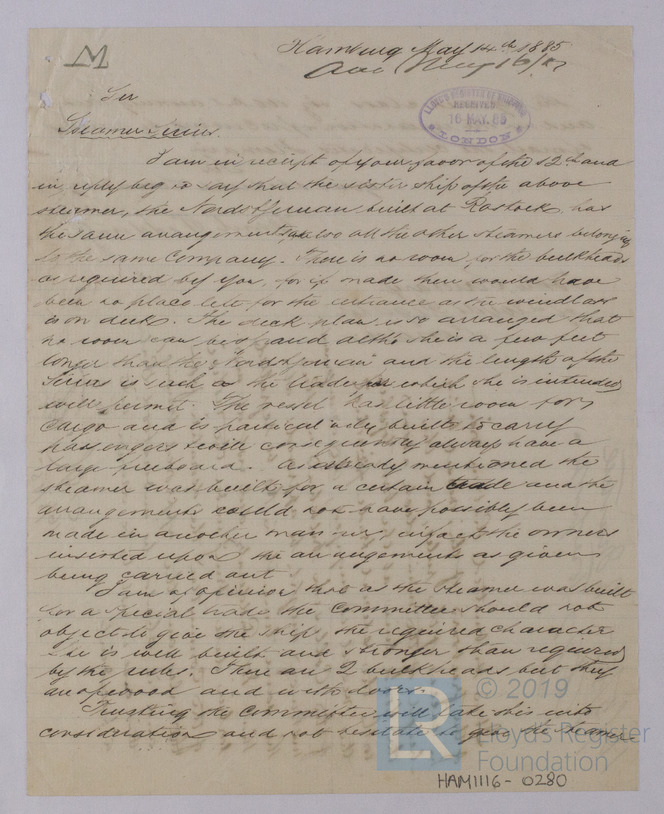 M
Hamburg May 14th 1885
May 16/85
LLOYD'S REGISTER OF SHIPPING
RECEIVED
16 MAY.85
LONDON
Sir
Steamer Sirius.
I am in receipt of your favor of the 12th and
in reply beg to say that the sister ship of the above
steamer, the built at Rostock has
the same arrangements, too all the other steamers belonging
to the same Company. There is no room for the bulkheads
as required by you, for if made there would have
been no place left for the entrance as the windlass
is on deck. The deck plan is so arranged that
no room can be and altho she is a few feet
longer than the and the length of the
Sirius is such as the trade for which she is intended
will permit. The vessel has little room for
Cargo and is particularly built to carry
passengers & will consequently always have a
large freeboard. As already mentioned the
steamer was built for a certain trade and the
arrangements could not have possibly been
made in another manner, in fact the owners
insisted upon the arrangements as given
being carried out
I am of opinion that as the steamer was built
for a special trade the Committee should not
object to give the ship the required character
is well built and stronger than required
by the rules. There are 2 bulkheads but they
are of wood and with doors.
Trusting the Committee will take this into
consideration and not hesitate to give the steamer
© 2019
LR
Lloyd's Register
Foundation
HAM1116-0280